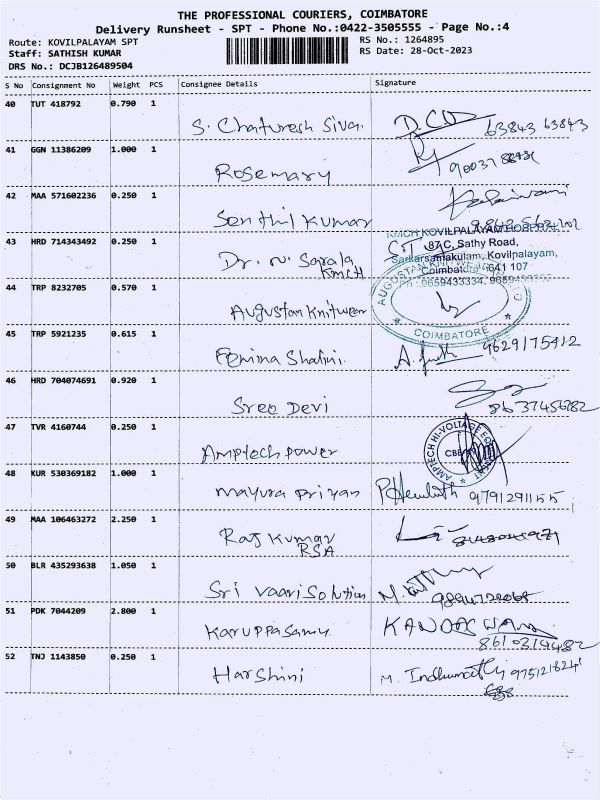 THE PROFESSIONAL COURIERS, COIMBATORE
Delivery Runsheet - SPT - Phone No.:0422-3505555 - Page No.:4
Route: KOVILPALAYAM SPT
RS No.: 1264895
Staff: SATHISH KUMAR
RS Date: 28-Oct-2023
DRS No.: DCJB126489504
S No Consignment No Weight PCS Consignee Details Signature
40 TUT 418792 0.790 1
S. Chaturesh Siva. 63843 63843
41 GGN 11386209 1.000 1
Rosemary
42 MAA 571602236 0.250 1
Senthil Kumar Kalaivani
KMCH KOVILPALAYAM HOSPITAL
43 HRD 714343492 0.250 1
87 C, Sathy Road,
Dr. N. Sarala
Sarkarsamakulam, Kovilpalayam,
KMCH
Coimbatore - 641 107
44 TRP 8232705 0.570 1
Augustan Knitwear
AUGUSTAN KNITWEAR
COIMBATORE
45 TRP 5921235 0.615 1
Femina Shalini. 9629175412
46 HRD 704074691 0.920 1
Sree Devi 8637456282
47 TVR 4160744 0.250 1
Amptech power
AMPTECH HI-VOLTAGE
CBE
48 KUR 530369182 1.000 1
mayura priyan 97912911555
49 MAA 106463272 2.250 1
Raj Kumar
RSA
50 BLR 435293638 1.050 1
Sri vaari Solution
51 PDK 7044209 2.800 1
Karuppasamy
8610314482
52 TNJ 1143850 0.250 1
Harshini M. Indhumathi 9751218241